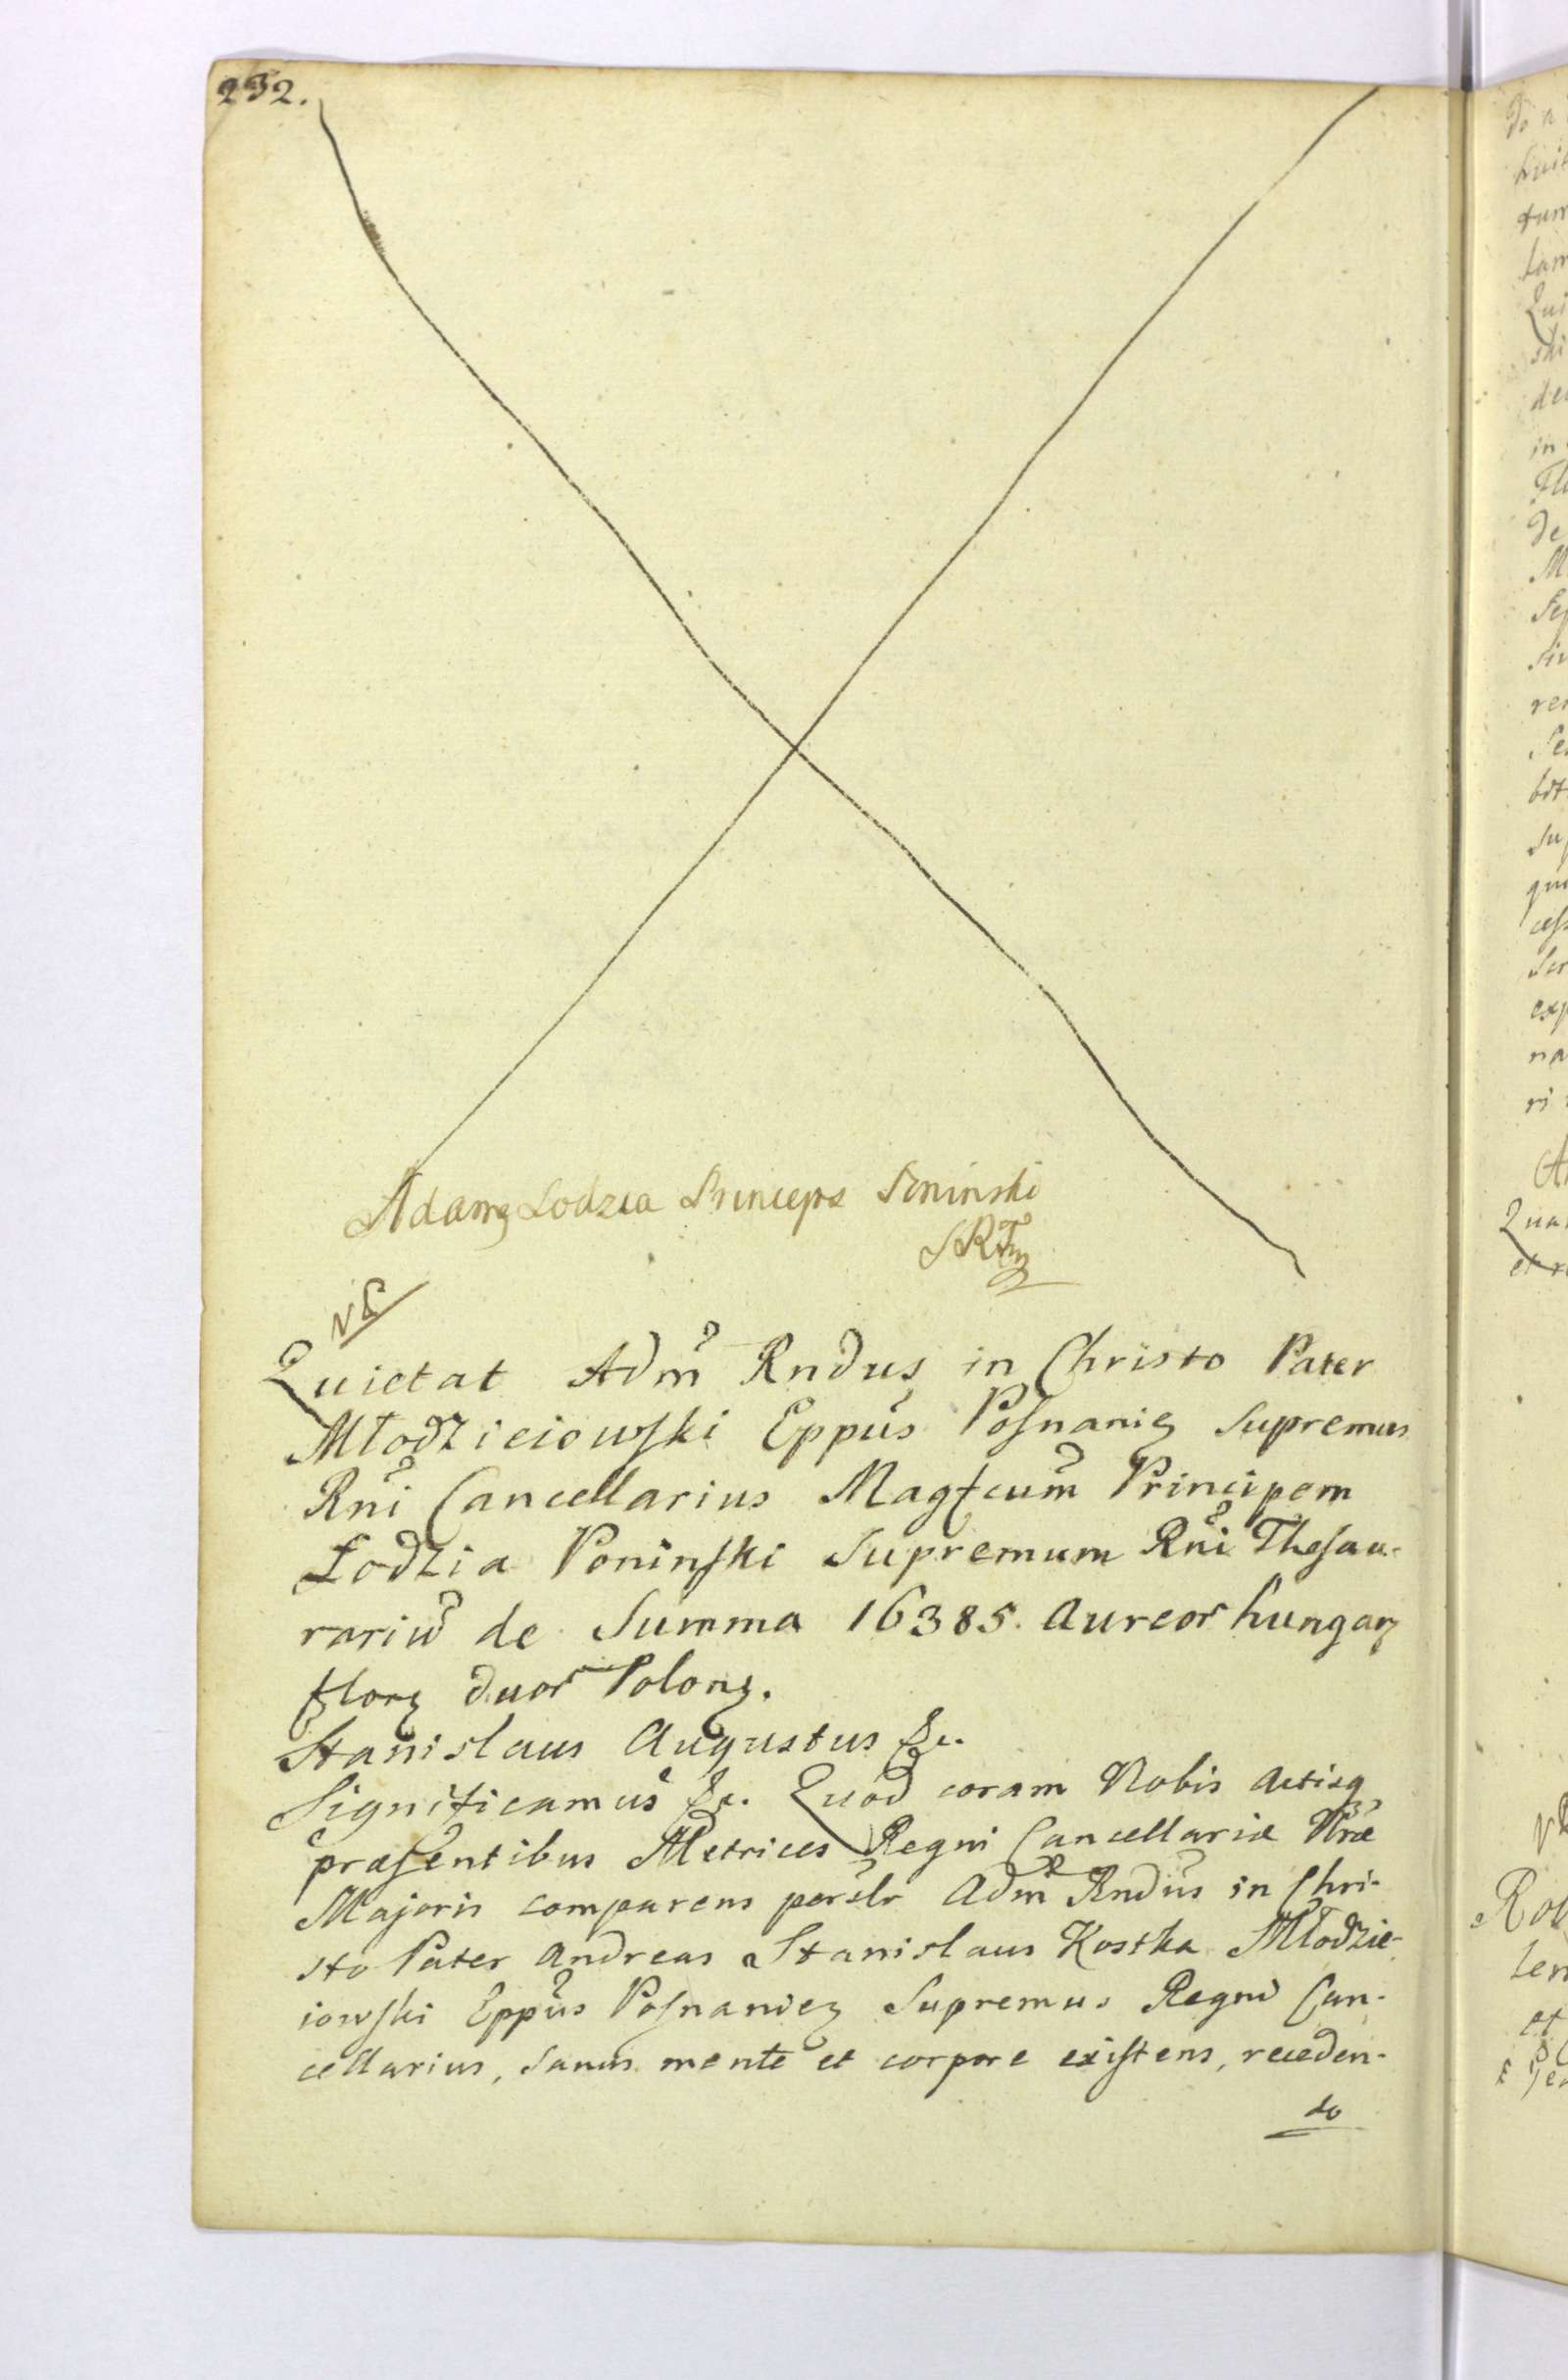 232.
Adamꝫ Lodzia Princeps Poninski
SRTm
Quietat Adm̃ Rndus in Christo Pater
Młodzieiowſki Eppũs Poſnanię Supremus
Rñi Cancellarius Magfcum̃ Principem
Łodzia Poninſki Supremum Rñi Theſau-
rariũ de Summa 16385. Aureor hungarꝫ
florꝫ duor Polonꝫ.
Stanislaus Augustus &c.
Significamus &c. Quod coram Nobis Actisq
præſentibus Metrices Regni Cancellariæ Nræ
Majoris comparens perslr Adm̃ Rndũs in Chri-
sto Pater Andreas Stanislaus Kostka Młodzie-
iowſki Eppũs Poſnanieꝫ Supremus Regni Can-
cellarius, sanus mente et corpore exiſtens, receden-
do